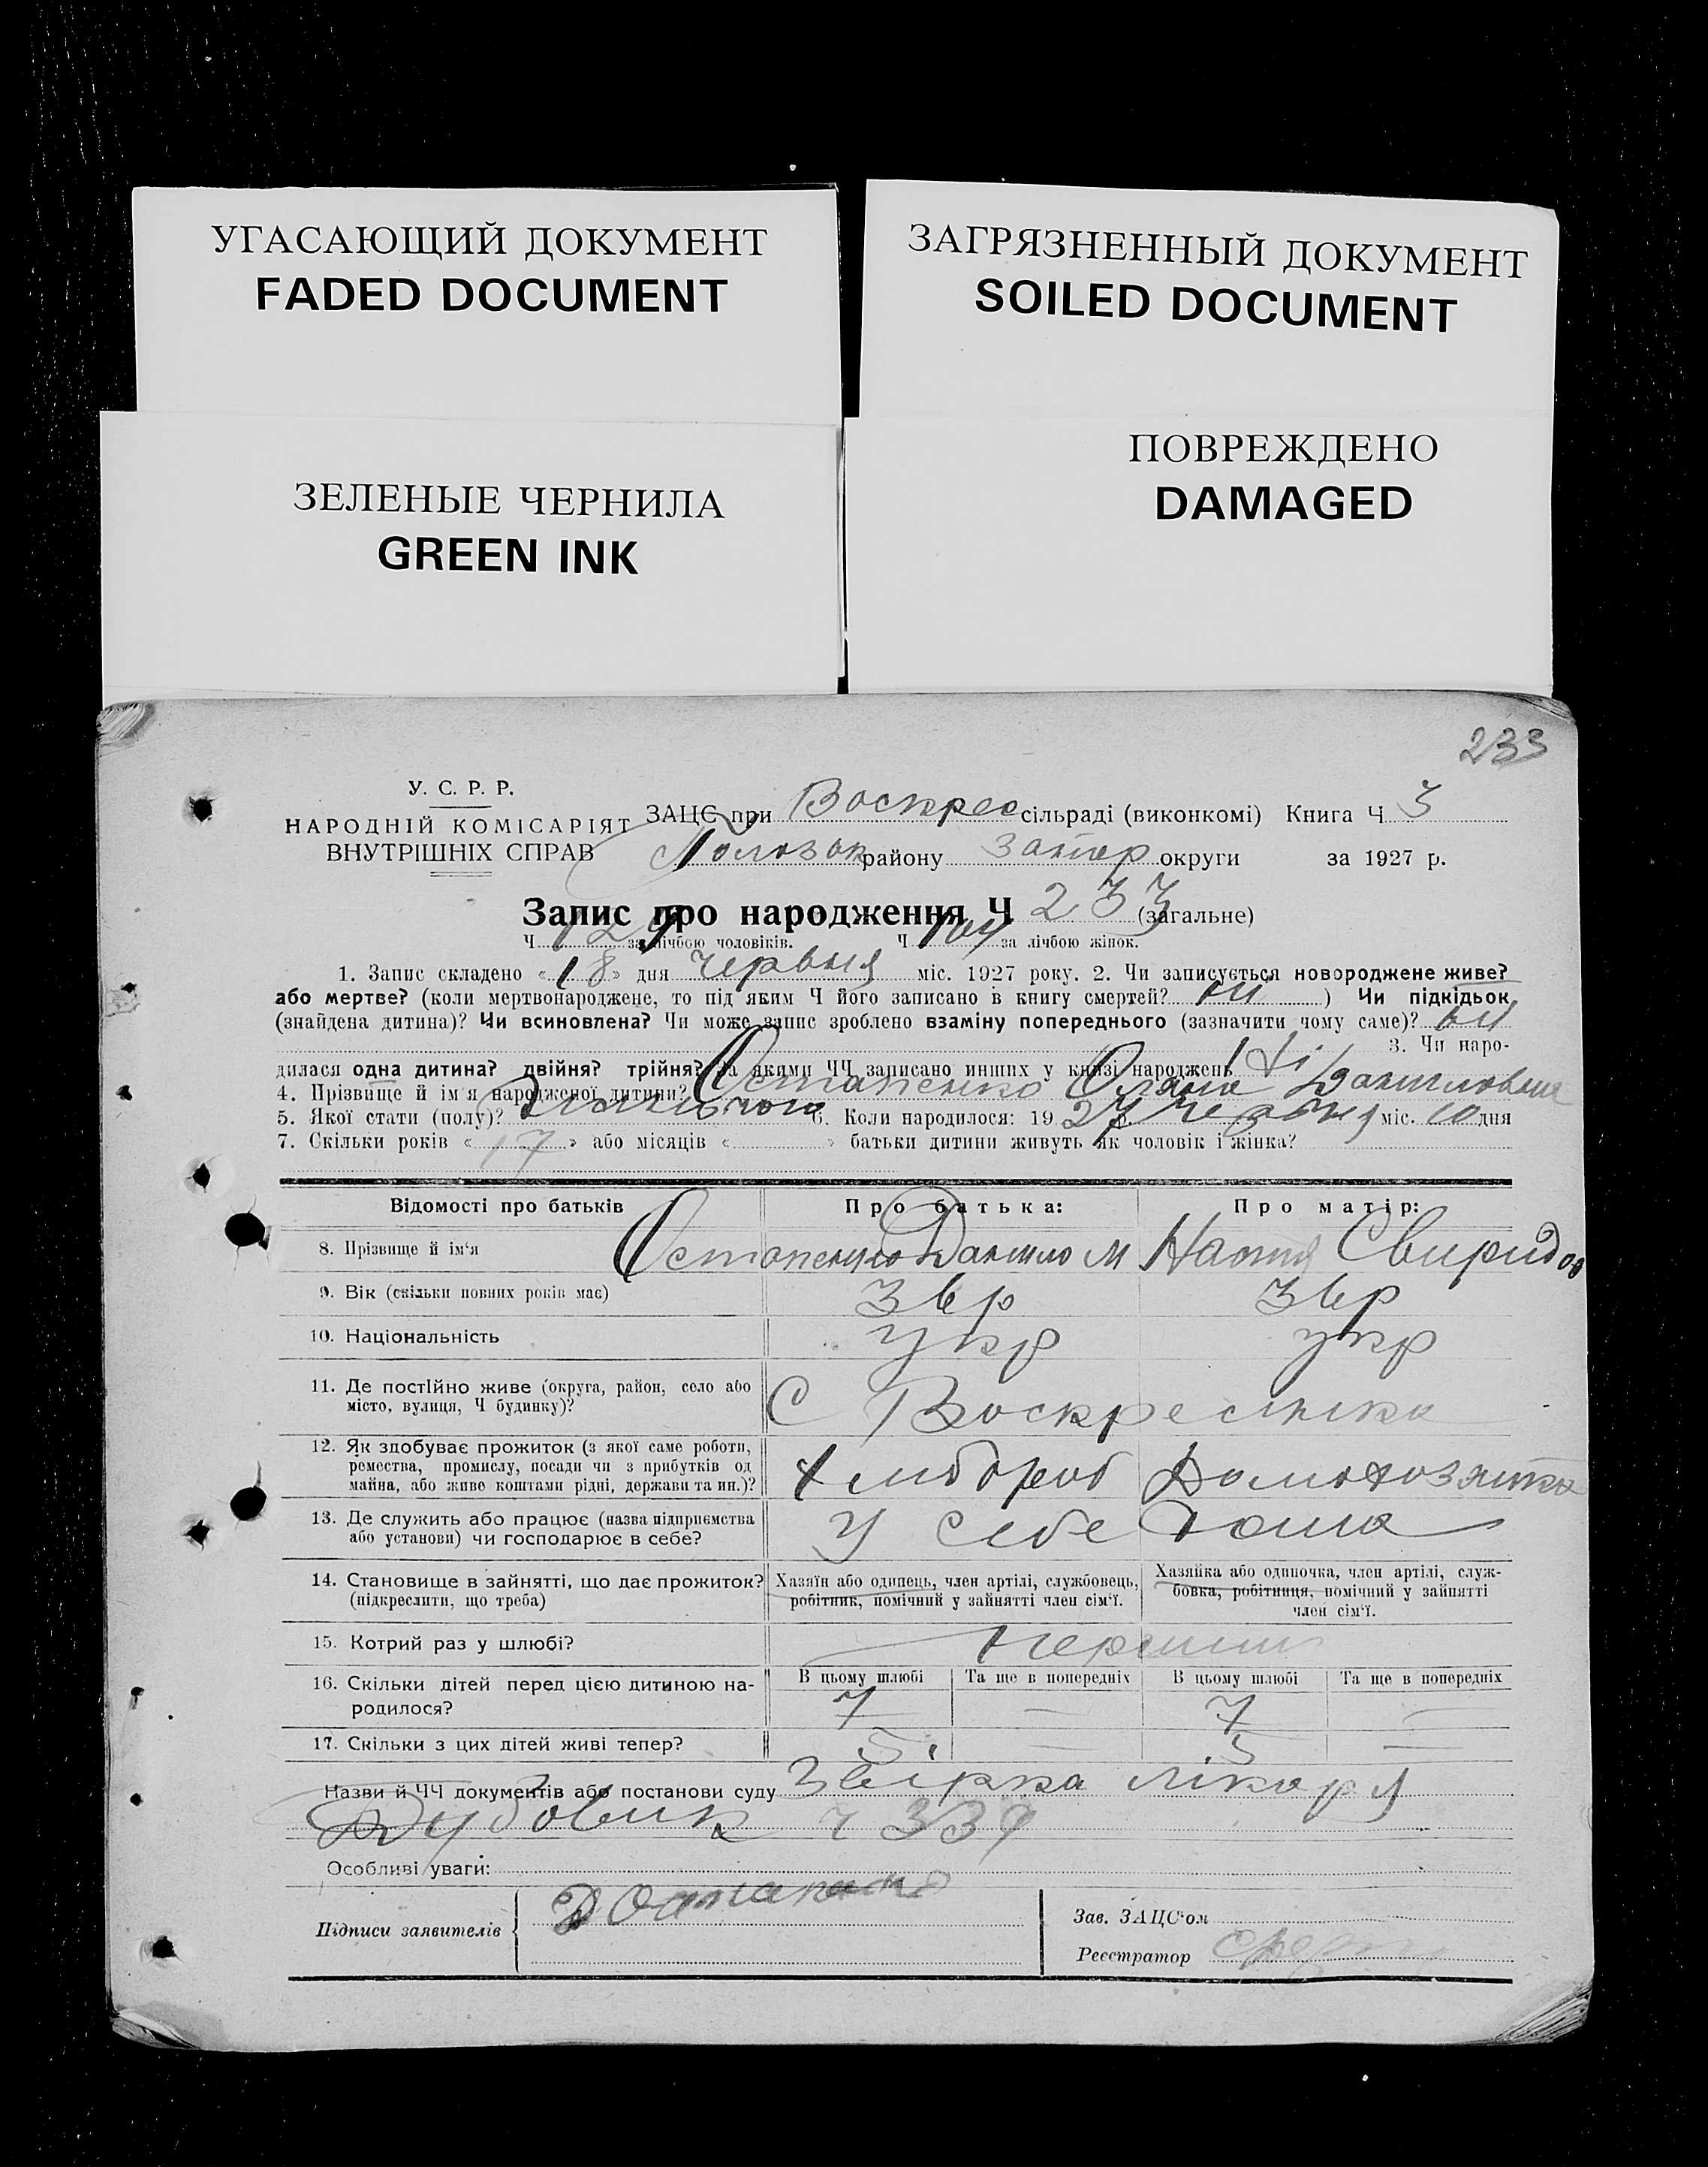 УГАСАЮЩИЙ ДОКУМЕНТ
FADED DOCUMENT
ЗАГРЯЗНЕННЫЙ ДОКУМЕНТ
SOILED DOCUMENT
ЗЕЛЕНЫЕ ЧЕРНИЛА
GREEN INK
ПОВРЕЖДЕНО
DAMAGED
233
У. С. Р. Р.
НАРОДНІЙ КОМІСАРІЯТ
ВНУТРІШНІХ СПРАВ
ЗАЦС при Воскрес сільраді (виконкомі) Книга Ч 3
району Запор округи за 1927 р.
Запис про народження Ч 233 (загальне)
Ч за лічбою чоловіків. Ч 104 за лічбою жінок.
1. Запис складено «18» дня червня міс. 1927 року. 2. Чи записується новороджене живе?
або мертве? (коли мертвонароджене, то під яким Ч його записано в книгу смертей? ні ) Чи підкідьок
(знайдена дитина)? Чи всиновлена? Чи може запис зроблено взаміну попереднього (зазначити чому саме)? ні
3. Чи наро-
дилася одна дитина? двійня? трійня? та якими ЧЧ записано инших у книзі народжень
4. Прізвище й ім'я народженої дитини? Остапенко Даниловна
5. Якої стати (полу)? 6. Коли народилося: 1927 р. червня міс. 10 дня
7. Скільки років «17» або місяців « » батьки дитини живуть як чоловік і жінка?
Відомості про батьків Про батька: Про матір:
8. Прізвище й ім'я Остапенко Данило М Настя Свиридов
9. Вік (скільки повних років має) 36р 36р
10. Національність укр укр
11. Де постійно живе (округа, район, село або
місто, вулиця, Ч будинку)? С Воскресінка
12. Як здобуває прожиток (з якої саме роботи,
ремества, промислу, посади чи з прибутків од
майна, або живе коштами рідні, держави та ин.)? хлібороб Домохозяйка
13. Де служить або працює (назва підприємства
або установи) чи господарює в себе? у себе дома
14. Становище в зайнятті, що дає прожиток?
(підкреслити, що треба)
Хазяїн або одинець, член артілі, службовець,
робітник, помічний у зайнятті член сім'ї.
Хазяйка або одиночка, член артілі, служ-
бовка, робітниця, помічний у зайнятті
член сім'ї.
15. Котрий раз у шлюбі? перший
16. Скільки дітей перед цією дитиною на-
родилося?
В цьому шлюбі Та ще в попередніх В цьому шлюбі Та ще в попередніх
7 — 7 —
17. Скільки з цих дітей живі тепер? 5 — 5 —
Назви й ЧЧ документів або постанови суду Звірка лікаря
Дубовик ч 339
Особливі уваги:
Підписи заявителів
Зав. ЗАЦС'ом
Реєстратор